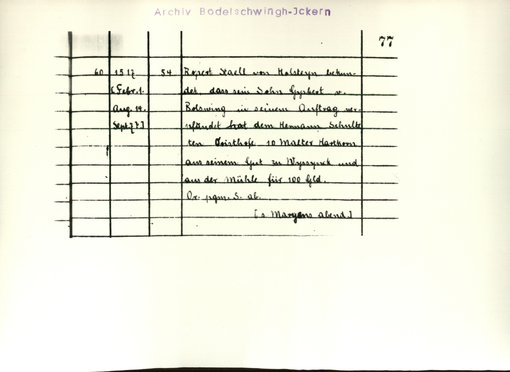 Archiv Bodelschwingh-Ickern
77
60 1517 54 Ropert Staell von Holsteyn bekun-
[Febr. 1. det, dass sein Sohn Gysbert v.
Aug. 14. Bolswing in seinem Auftrag ver-
Sept. 7] pfändet hat dem Hermann Schulte
ten Oisthofe 10 Malter Hartkorn
aus seinem Gut zu und
aus der Mühle für 100 Gld.
Or. pgm. S. ab.
[s Margens abend.]